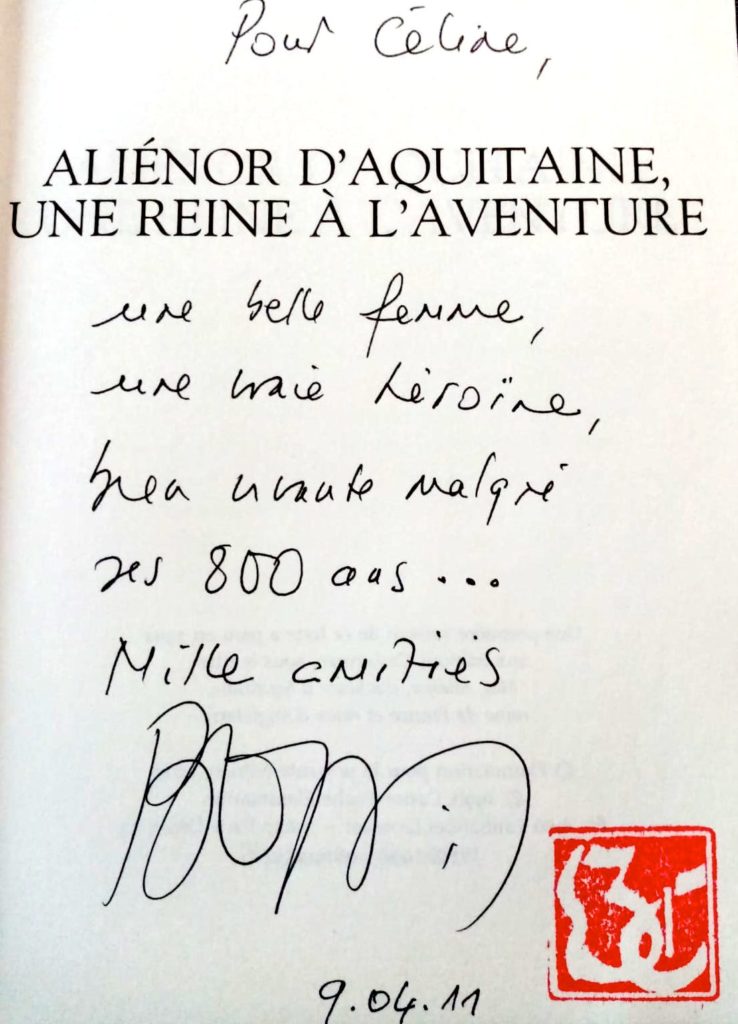 Pour Céline,
ALIÉNOR D'AQUITAINE,
UNE REINE À L'AVENTURE
une belle femme,
une vraie héroïne,
bien vivante malgré
ses 800 ans ...
Mille amitiés
9.04.11